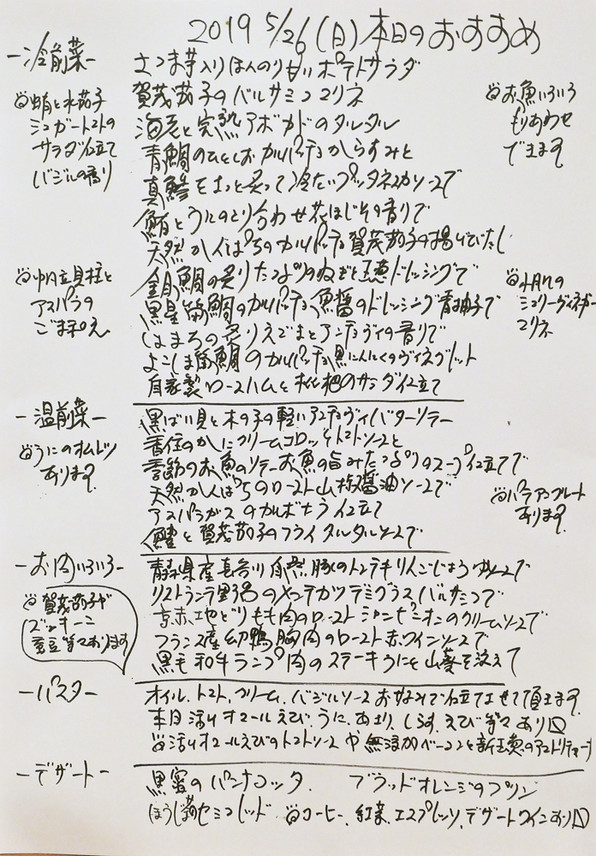 2019 5/26(日)本日のおすすめ
ー冷前菜ー
さつま芋入りほんのり甘いポテトサラダ
賀茂茄子のバルサミコマリネ
海老と完熟アボカドのタルタル
青鯛のひとしおカルパッチョからすみと
真鯵をさっと炙って冷たいプッタネスカソースで
鮪とうにのとり合わせ花ほじその香りで
天然かんぱちのカルパッチョ賀茂茄子の揚げびたし
金目鯛の炙りたっぷりねぎと玉葱ドレッシングで
黒星笛鯛のカルパッチョ魚醤のドレッシング青柚子で
はまちの炙りえごまとアンチョヴィの香りで
よこしま笛鯛のカルパッチョ黒にんにくヴィネグレット
自家製ロースハムと枇杷のサラダ仕立て
◎蛸と水茄子
シュガートマトの
サラダ仕立て
バジルの香り
◎帆立貝柱と
アスパラの
ごま和え
◎お魚いろいろ
もりあわせ
できます
◎小肌の
シェリーヴィネガー
マリネ
ー温前菜ー
黒ばい貝と木の子の軽いアンチョヴィバターソテー
香住のかにクリームコロッケトマトソースと
季節のお魚のソテーお魚の旨みたっぷりのスープ仕立てで
天然かんぱちのロースト山椒醤油ソースで
アスパラガスのカルボナーラ仕立て
鱧と賀茂茄子のフライタルタルソースで
◎うにのオムレツ
あります
◎パテアンクルート
あります
ーお肉いろいろー
青森県産長谷川自然豚のトンテキりんごしょうゆソースで
リストランテ里沼のメンチカツデミグラスバルサミコで
京赤地どりもも肉のローストシャンピニオンのクリームソースで
フランス産幼鴨胸肉のロースト赤ワインソースで
黒毛和牛ランプ肉のステーキうにと山葵を添えて
◎賀茂茄子
ズッキーニ
ーパスター
オイル、トマト、クリーム、バジルソースお好みで仕立てさせて頂きます
本日活オマールえび、うに、あさり、しらす、えび等々あり〼
◎活オマールえびのトマトソースや無添加ベーコンと新玉葱のアマトリチャーナ
ーデザートー
黒蜜のパンナコッタ、 ブラッドオレンジのプリン
ほうじ茶セミフレッド ◎コーヒー、紅茶、エスプレッソ、デザートワインあり〼